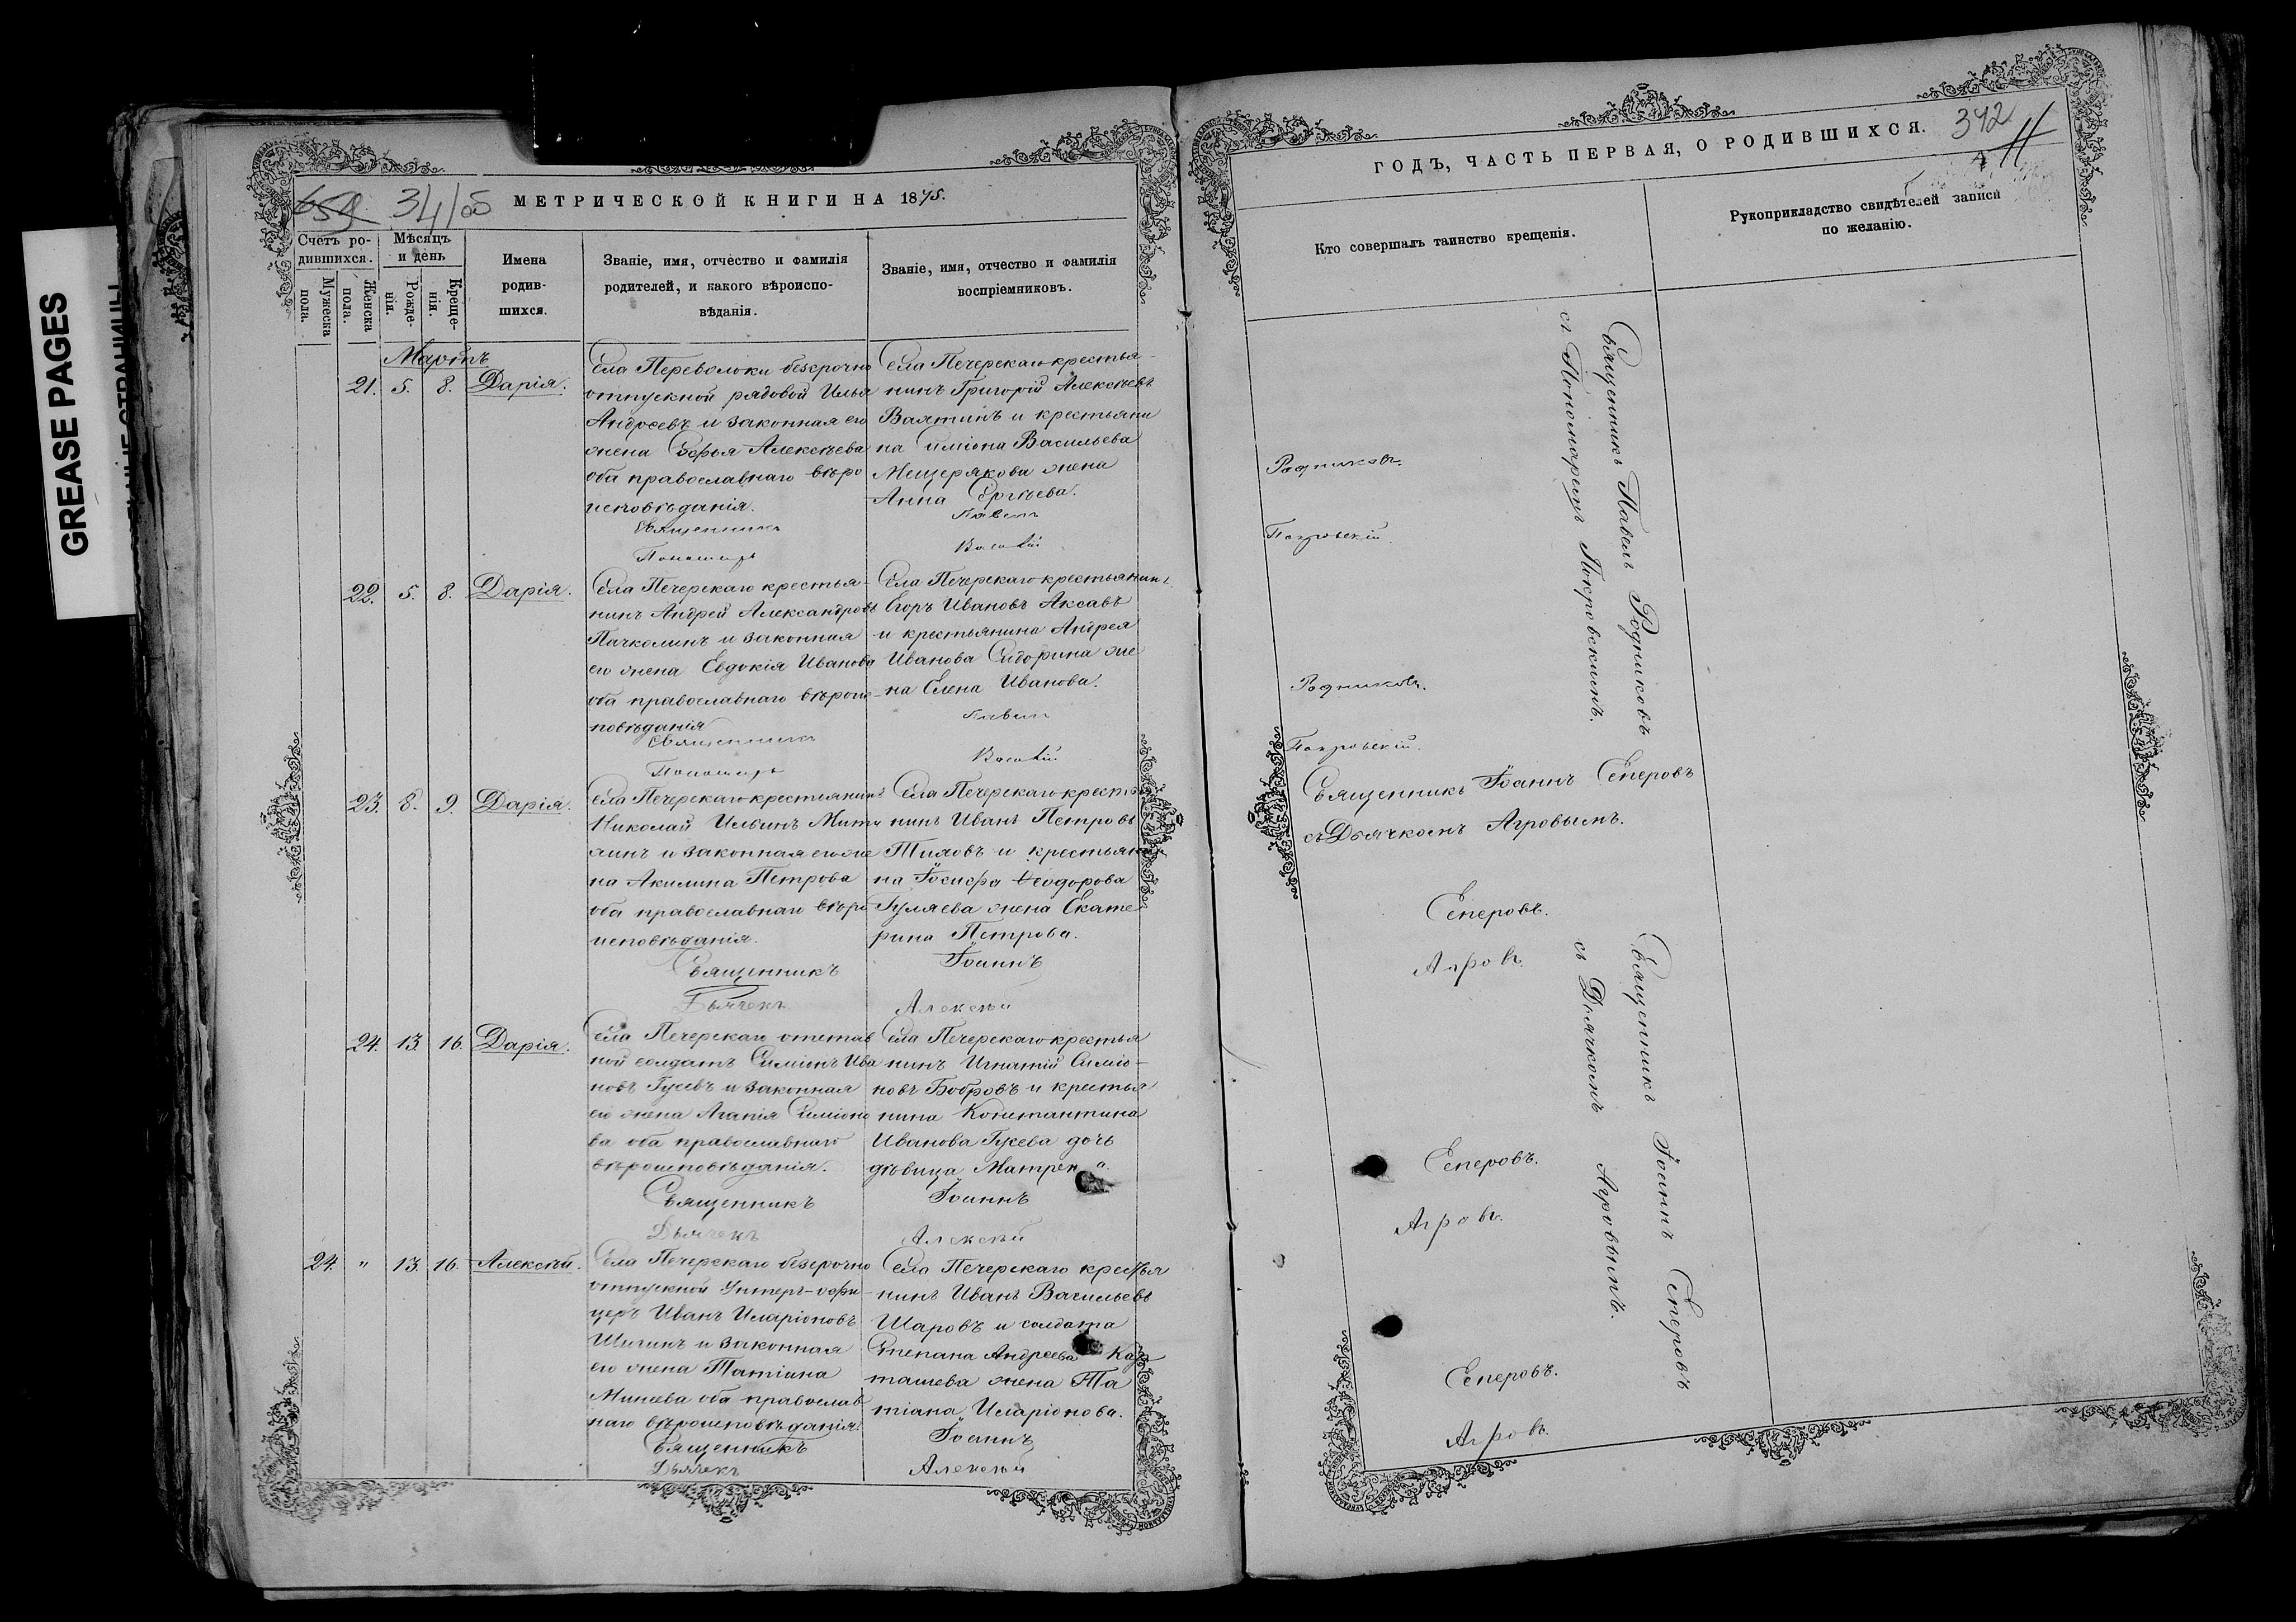 GREASE PAGES
659 341об
МЕТРИЧЕСКОЙ КНИГИ НА 1875.
Счетъ ро-
дившихся.
Мужеска
пола.
Женска
пола.
Мѣсяцъ
и день
Рожде-
нія.
Креще-
нія.
Имена
родив-
шихся.
Званіе, имя, отчество и фамилія
родителей, и какого вѣроиспо-
вѣданія.
Званіе, имя, отчество и фамилія
воспріемниковъ.
Мартъ
21. 5. 8. Дарія.
Села Переволоки безсрочно
отпускной рядовой Илья
Андреевъ и законная его
жена Софья Алексѣева
оба православнаго вѣро
исповѣданія.
Священникъ
Пономарь
Села Печерскаго крестья-
нинъ Григорій Алексѣевъ
Ваятинъ и крестьяни
на Симіона Васильева
Мещерякова жена
Анна Сергѣева.
Павелъ
Василій
22. 5. 8. Дарія.
Села Печерскаго крестья-
нинъ Андрей Александровъ
Пачколинъ и законная
его жена Евдокія Иванова
оба православнаго вѣроис-
повѣданія
Священникъ
Пономарь
Села Печерскаго крестьянинъ
Егоръ Ивановъ Аксавъ
и крестьянина Андрея
Иванова Сидорина же
на Елена Иванова.
Павелъ
Василій
23. 8. 9. Дарія.
Села Печерскаго крестьянинъ
Николай Ильинъ Митя
линъ и законная его же
на Акилина Петрова
оба православнаго вѣро
исповѣданія.
Священникъ
Дьячекъ
Села Печерскаго крестья
нинъ Иванъ Петровъ
Тиховъ и крестьяни
на Іосифа Ѳеодорова
Гуляева жена Екате
рина Петрова.
Іоаннъ
Алексѣй
24. 13. 16. Дарія.
Села Печерскаго отстав
ной солдатъ Симіонъ Ива
новъ Гусевъ и законная
его жена Агапія Симіоно
ва оба православнаго
вѣроисповѣданія.
Священникъ
Дьячекъ
Села Печерскаго крестья
нинъ Игнатій Симіо-
новъ Бобровъ и крестья
нина Константина
Иванова Гусева дочь
дѣвица Матрена.
Іоаннъ
Алексѣй
24. " 13. 16. Алексѣй.
Села Печерскаго безсрочно
отпускной Унтеръ-офи-
церъ Иванъ Иларіоновъ
Шигинъ и законная
его жена Татіана
Минева оба православ
наго вѣроисповѣданія.
Священникъ
Дьячекъ
Села Печерскаго крестья
нинъ Иванъ Васильевъ
Шаровъ и солдата
Степана Андреева Кар
ташева жена Та
тіана Иларіонова.
Іоаннъ
Алексѣй
ГОДЪ, ЧАСТЬ ПЕРВАЯ, О РОДИВШИХСЯ.
342
Кто совершалъ таинство крещенія.
Рукоприкладство свидѣтелей записи
по желанію.
Священникъ Павелъ Родниковъ
съ Пономаремъ Покровскимъ.
Родниковъ.
Покровскій.
Родниковъ.
Покровскій.
Священникъ Іоаннъ Сеперовъ
съ Дьячкомъ Агровымъ.
Сеперовъ.
Агровъ.
Священникъ Іоаннъ Сеперовъ
съ Дьячкомъ Агровымъ.
Сеперовъ.
Агровъ.
Сеперовъ.
Агровъ.